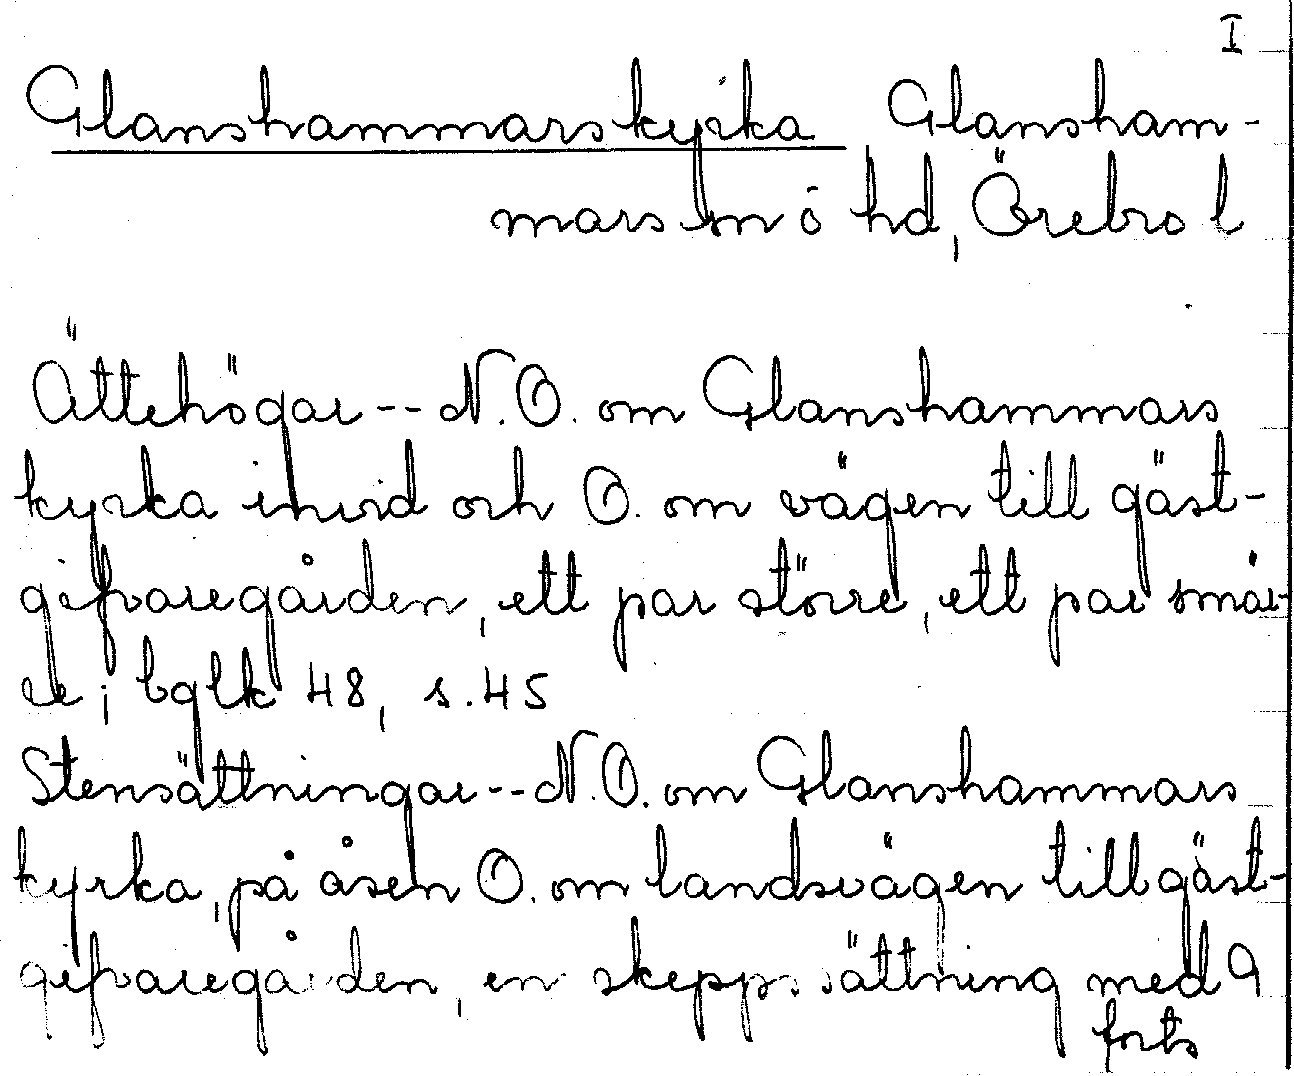 I
Glanshammars kyrka Glansham-
mars sn ö hd, Örebro l
Ättehögar -- N.O. om Glanshammars
kyrka invid och O. om vägen till gäst-
gifvaregården, ett par större, ett par smär-
re; bglk 48, s.45
Stensättningar -- N.O. om Glanshammars
kyrka, på åsen O. om landsvägen till gäst-
gifvaregården, en skeppssättning med 9
forts